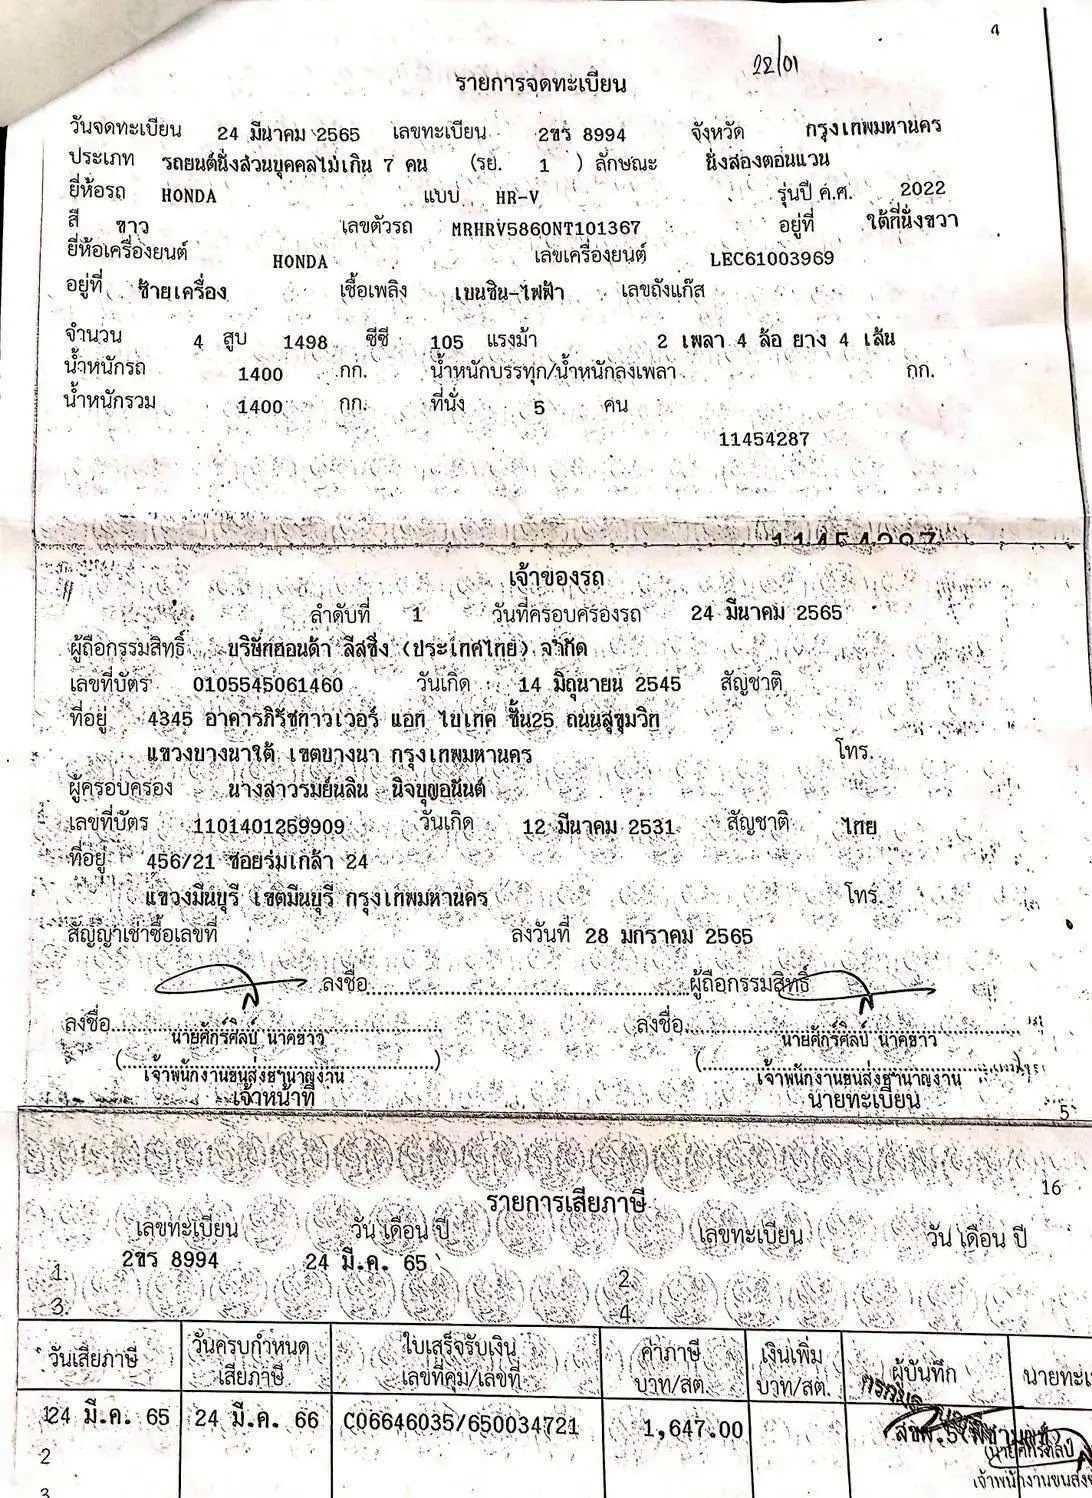 4
22/01
รายการจดทะเบียน
วันจดทะเบียน 24 มีนาคม 2565 เลขทะเบียน 2ขร 8994 จังหวัด กรุงเทพมหานคร
ประเภท รถยนต์นั่งส่วนบุคคลไม่เกิน 7 คน (รย. 1 ) ลักษณะ นั่งสองตอนแวน
ยี่ห้อรถ HONDA แบบ HR-V รุ่นปี ค.ศ. 2022
สี ขาว เลขตัวรถ MRHRV5860NT101367 อยู่ที่ ใต้ที่นั่งขวา
ยี่ห้อเครื่องยนต์ HONDA เลขเครื่องยนต์ LEC61003969
อยู่ที่ ซ้ายเครื่อง เชื้อเพลิง เบนซิน-ไฟฟ้า เลขถังแก๊ส
จำนวน 4 สูบ 1498 ซีซี 105 แรงม้า 2 เพลา 4 ล้อ ยาง 4 เส้น
น้ำหนักรถ 1400 กก. น้ำหนักบรรทุก/น้ำหนักลงเพลา กก.
น้ำหนักรวม 1400 กก. ที่นั่ง 5 คน
11454287
เจ้าของรถ
ลำดับที่ 1 วันที่ครอบครองรถ 24 มีนาคม 2565
ผู้ถือกรรมสิทธิ์ บริษัทฮอนด้า ลีสซิ่ง (ประเทศไทย) จำกัด
เลขที่บัตร 0105545061460 วันเกิด 14 มิถุนายน 2545 สัญชาติ
ที่อยู่ 4345 อาคารภิรัชทาวเวอร์ แอท ไบเทค ชั้น25 ถนนสุขุมวิท
แขวงบางนาใต้ เขตบางนา กรุงเทพมหานคร โทร.
ผู้ครอบครอง นางสาวรมย์นลิน นิจบุญอนันต์
เลขที่บัตร 1101401259909 วันเกิด 12 มีนาคม 2531 สัญชาติ ไทย
ที่อยู่ 456/21 ซอยร่มเกล้า 24
แขวงมีนบุรี เขตมีนบุรี กรุงเทพมหานคร โทร.
สัญญาเช่าซื้อเลขที่ ลงวันที่ 28 มกราคม 2565
ลงชื่อ ผู้ถือกรรมสิทธิ์
ลงชื่อ ลงชื่อ
นายศักร์ศิลป์ นาคขาว นายศักร์ศิลป์ นาคขาว
เจ้าพนักงานขนส่งชำนาญงาน เจ้าพนักงานขนส่งชำนาญงาน
เจ้าหน้าที่ นายทะเบียน
5
16
รายการเสียภาษี
เลขทะเบียน วัน เดือน ปี เลขทะเบียน วัน เดือน ปี
1. 2ขร 8994 24 มี.ค. 65 2
3. 4
วันเสียภาษี วันครบกำหนดเสียภาษี ใบเสร็จรับเงิน เลขที่คุม/เลขที่ ค่าภาษี บาท/สต. เงินเพิ่ม บาท/สต. ผู้บันทึก
1 24 มี.ค. 65 24 มี.ค. 66 C06646035/650034721 1,647.00
2
3